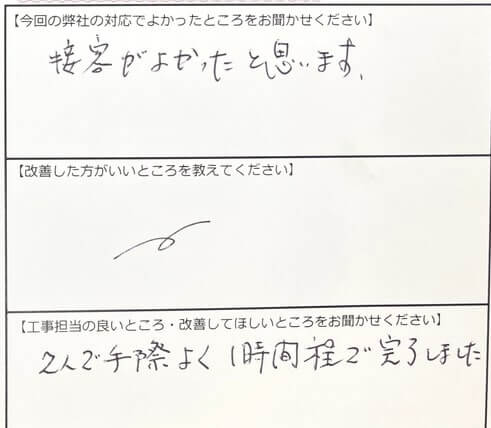 【今回の弊社の対応でよかったところをお聞かせください】
接客がよかったと思います.
【改善した方がいいところを教えてください】
【工事担当の良いところ・改善してほしいところをお聞かせください】
2人で手際よく1時間程で完了しました